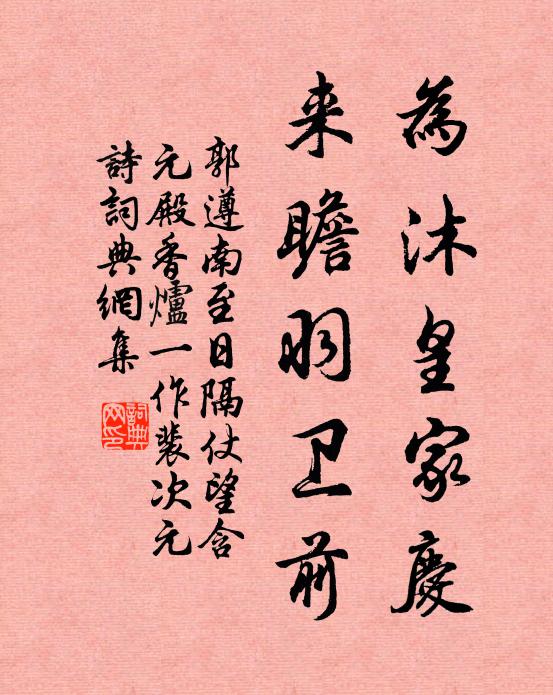 為沐皇家慶
来瞻羽卫前
郭遵南至日隔仗望含
元殿香爐一作裴次元
詩詞典網集
詞典
网印